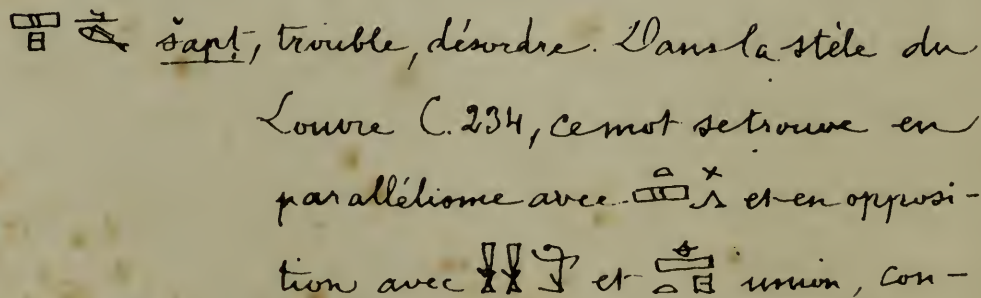 šapt, trouble, désordre. Dans la stèle du
Louvre C. 234, ce mot se trouve en
parallélisme avec et en opposi-
tion avec et union, con-